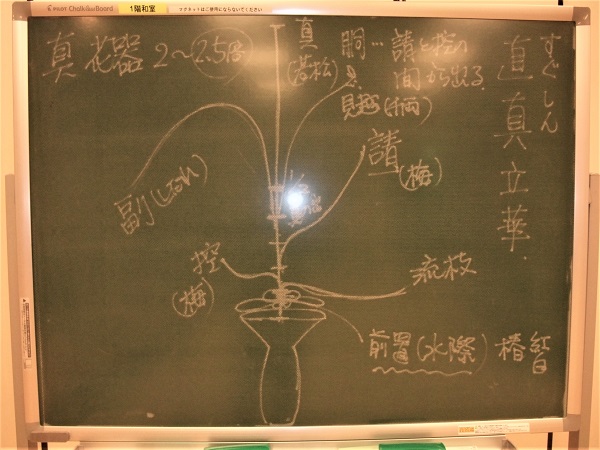 POINT ChalkikuBoard
1階和室
マグネットはご使用にならないでください
すぐしん
直真立華.
真 花器2〜2.5倍
真
(若松)
胴…請と控の
間から出る
見越(柄)
請
(梅)
副(しだれ)
控
(梅)
流枝
前置(水際) 椿 紅
白